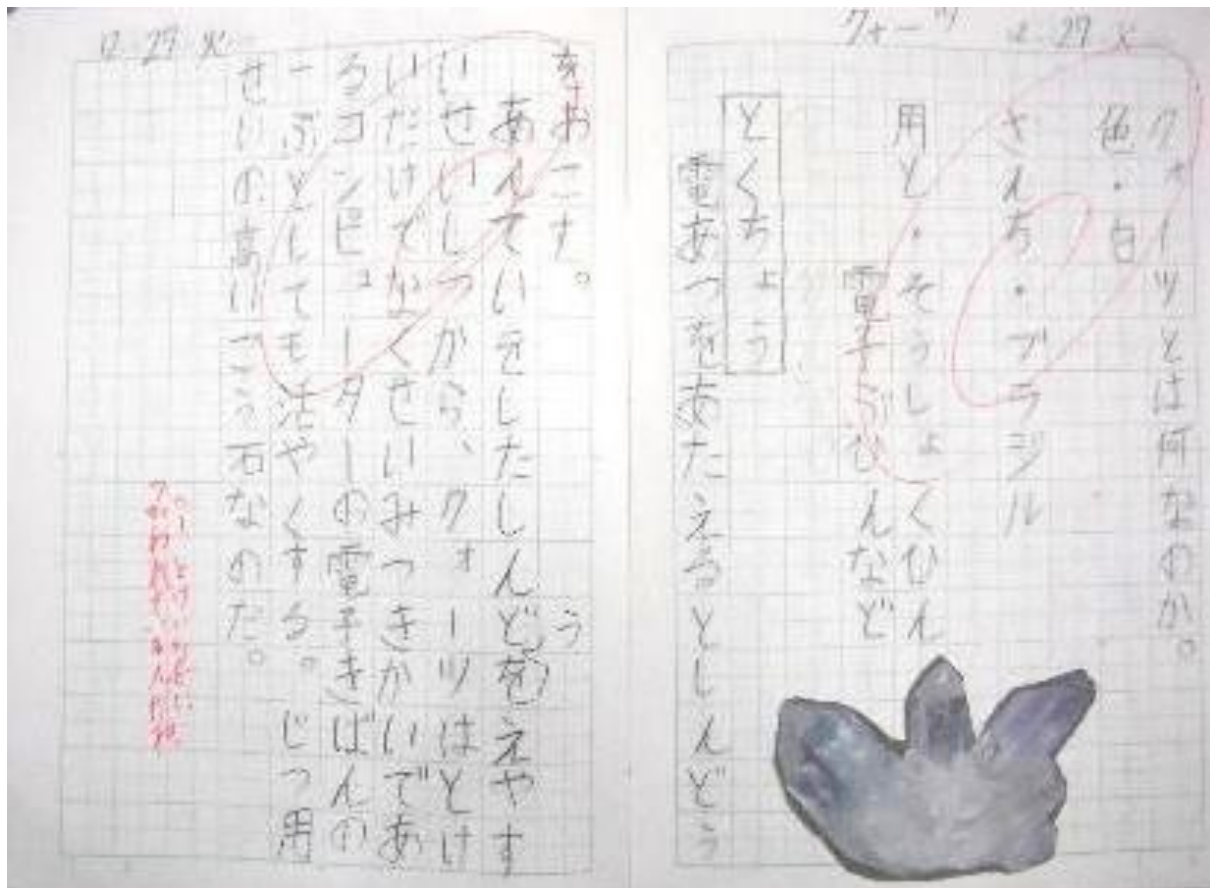 クォーツ 12.27 火
クォーツとは何なのか。
色・白
さんち・ブラジル
用と・そうしょくひん
電子ぶひんなど
とくちょう
電あつをあたえるとしんどう
12.27 火
をおこす。
あんていをしたしんどうをえやす
いせいしつから、クォーツはとけ
いだけでなくせいみつきかいであ
るコンピューターの電子きばんの
一ぶとしても活やくする。じつ用
せいの高いこう石なのだ。